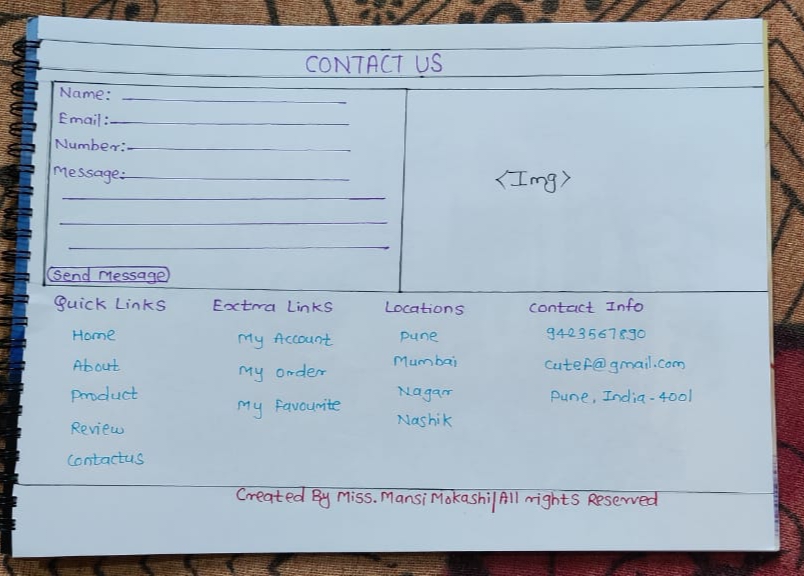 CONTACT US
Name:
Email:
Number:
Message:
<Img>
Send Message
Quick Links
Home
About
Product
Review
Contactus
Extra Links
My Account
My order
My favourite
Locations
Pune
Mumbai
Nagar
Nashik
Contact Info
9423567890
cutef@gmail.com
Pune, India - 4001
Created By Miss. Mansi Mokashi/All rights Reserved